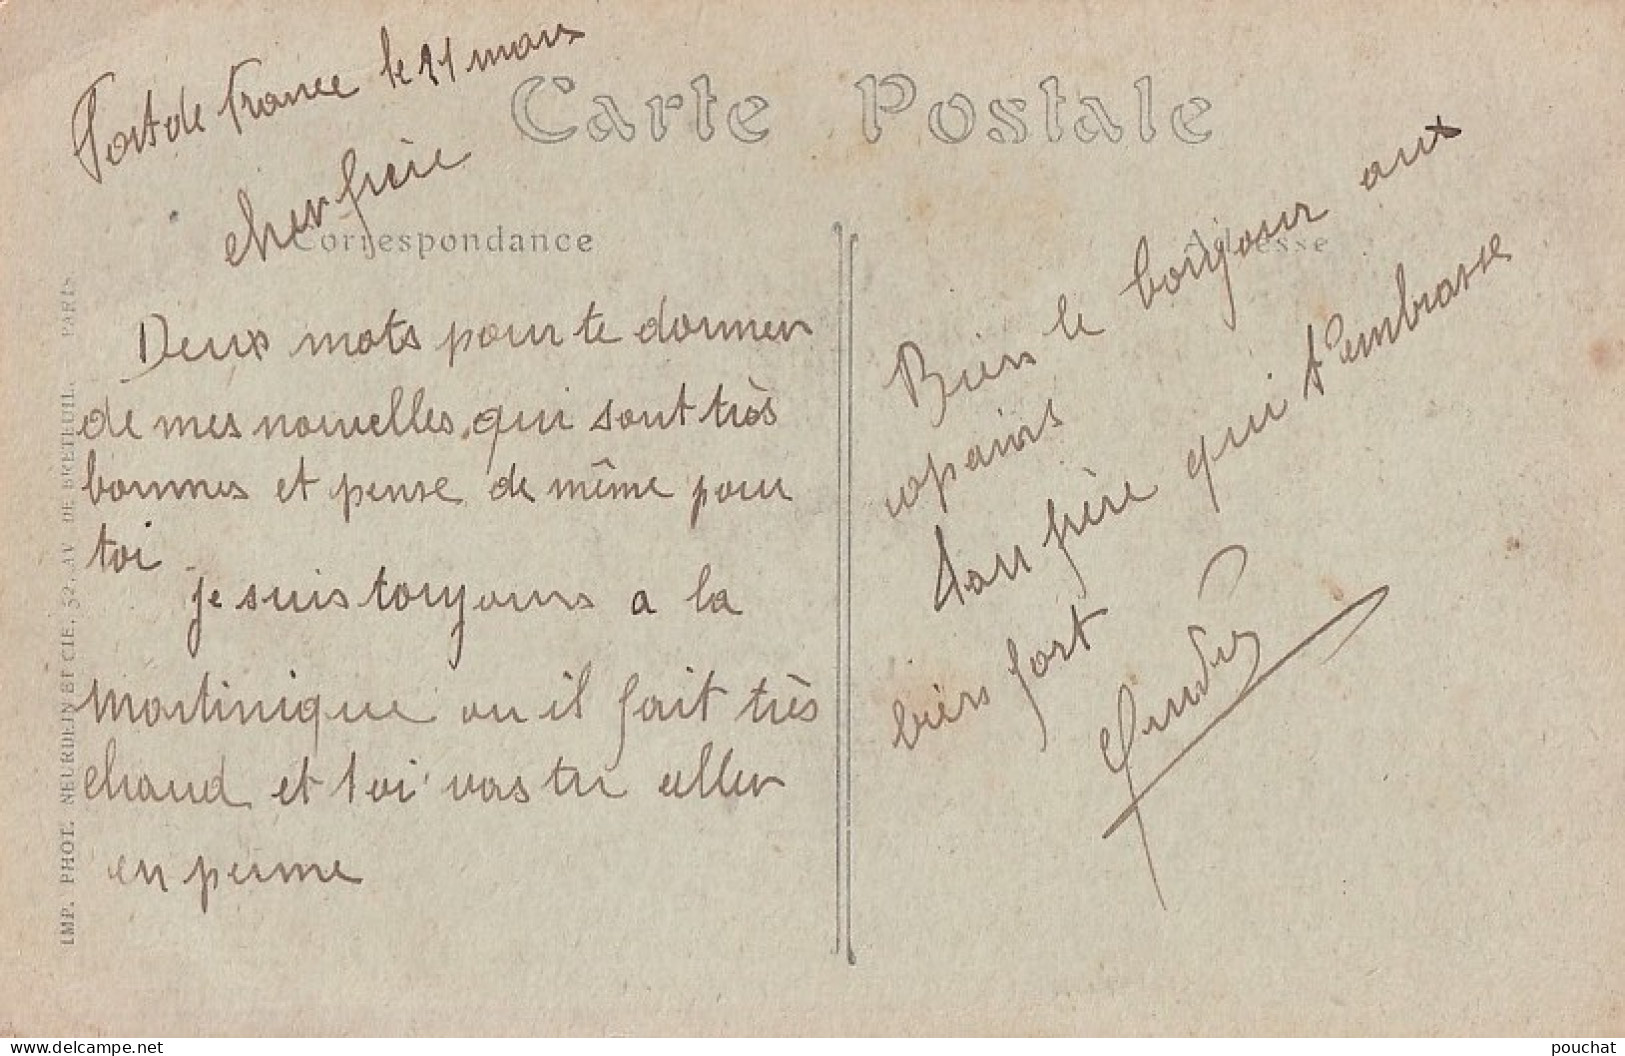 Fort de France le 21 mars
Carte Postale
cher frère
Correspondance
Deux mots pour te donner
de mes nouvelles, qui sont très
bonnes et pense de même pour
toi.
je suis toujours a la
Martinique ou il fait très
chaud et toi vas tu aller
en perme
Adresse
Bien le bonjour aux
copains
Ton frère qui t'embrasse
bien fort
IMP. PHOT. NEURDEIN ET CIE, 52, AV. DE BRETEUIL. PARIS
pouchat